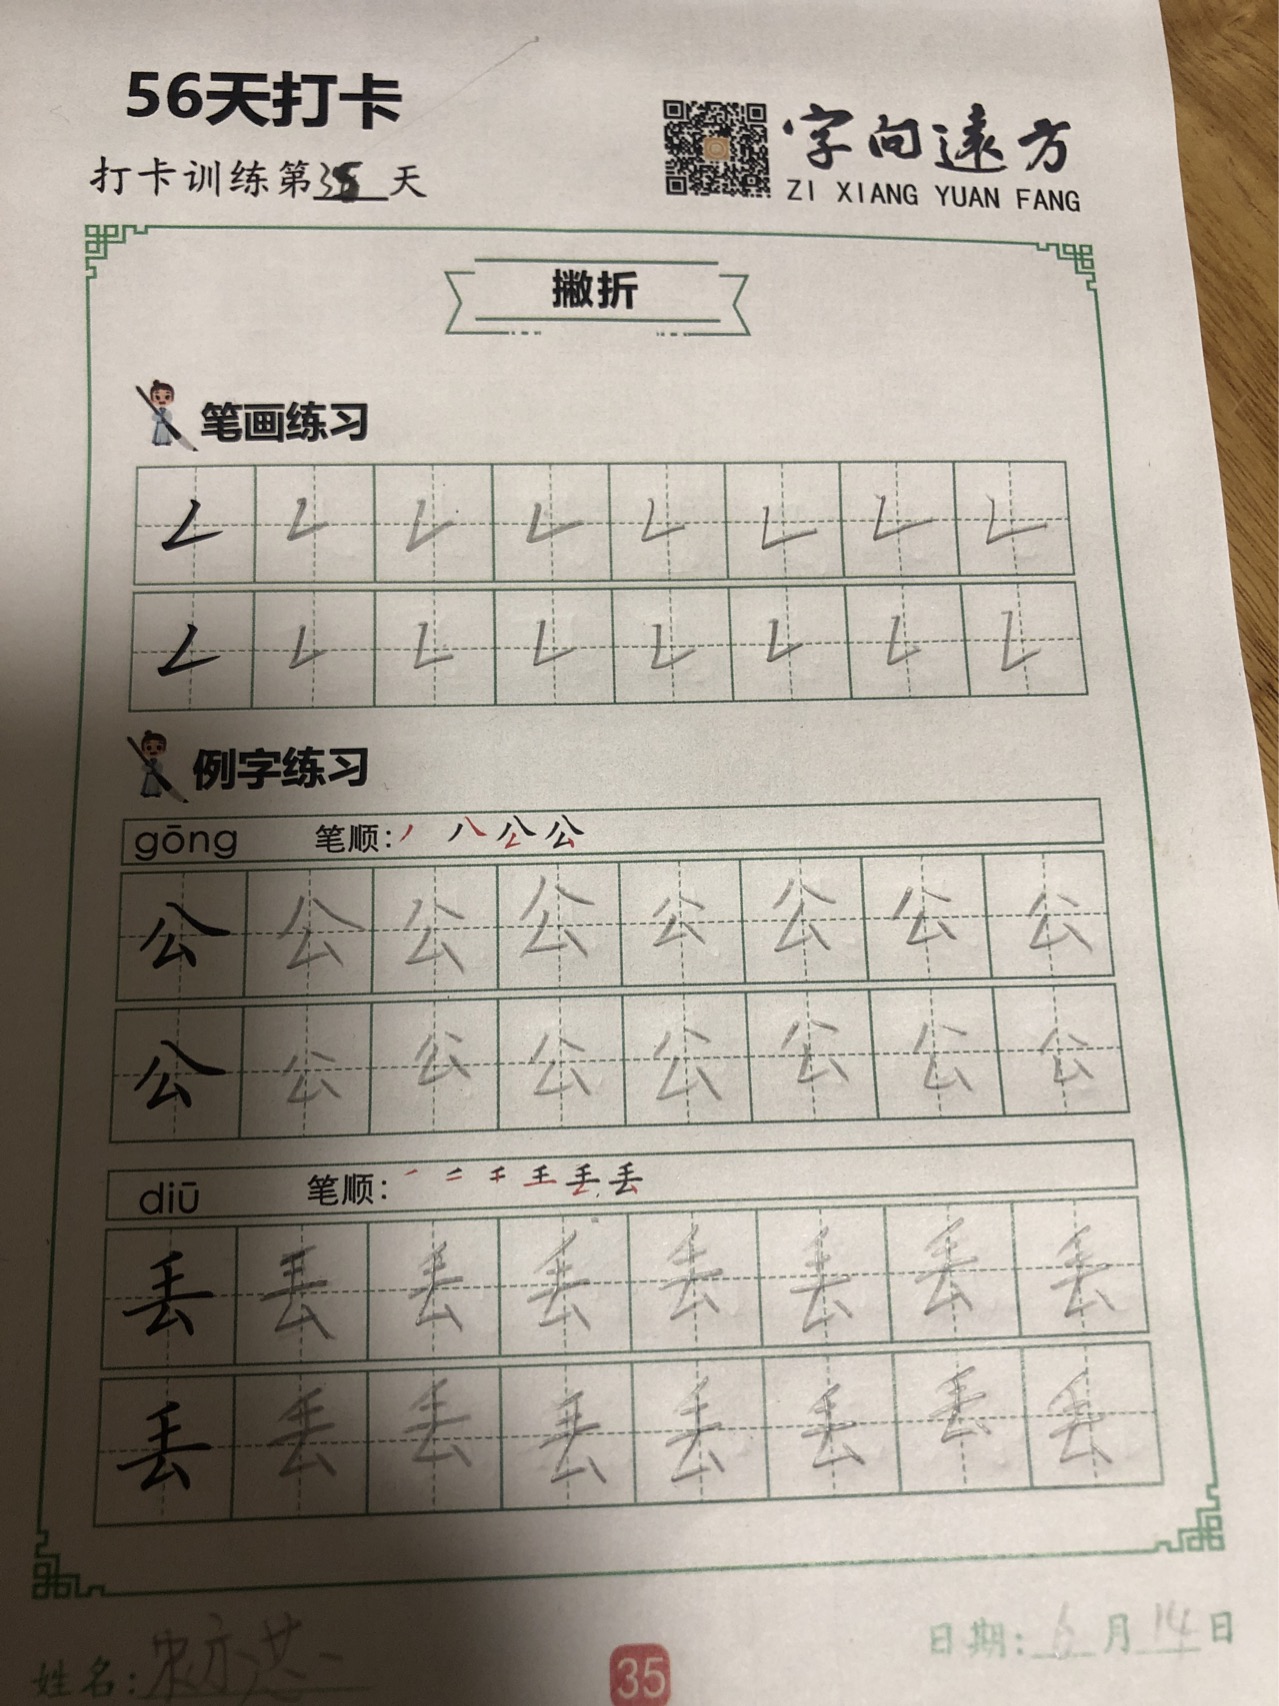 56天打卡
打卡训练第35天
字向远方
ZI XIANG YUAN FANG
撇折
笔画练习
例字练习
gōng 笔顺: 公
公 公 公 公 公 公 公 公
公 公 公 公 公 公 公 公
diū 笔顺: 丢
丢 丢 丢 丢 丢 丢 丢 丢
丢 丢 丢 丢 丢 丢 丢 丢
姓名:
日期: 6月14日
35